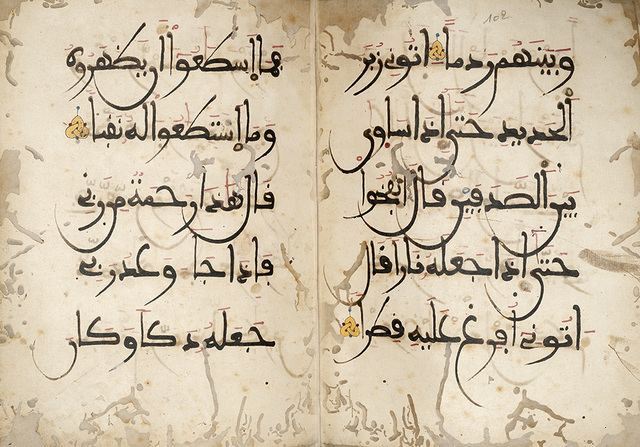 وبينهم ردما اتوني زبر
الحديد حتى اذا ساوى
بين الصدفين قال انفخوا
حتى اذا جعله نارا قال
اتوني افرغ عليه قطرا
فما اسطعوا ان يظهروه
وما استطعوا له نقبا
قال هذا رحمة من ربي
فاذا جا وعد ربي
جعله دكا وكان